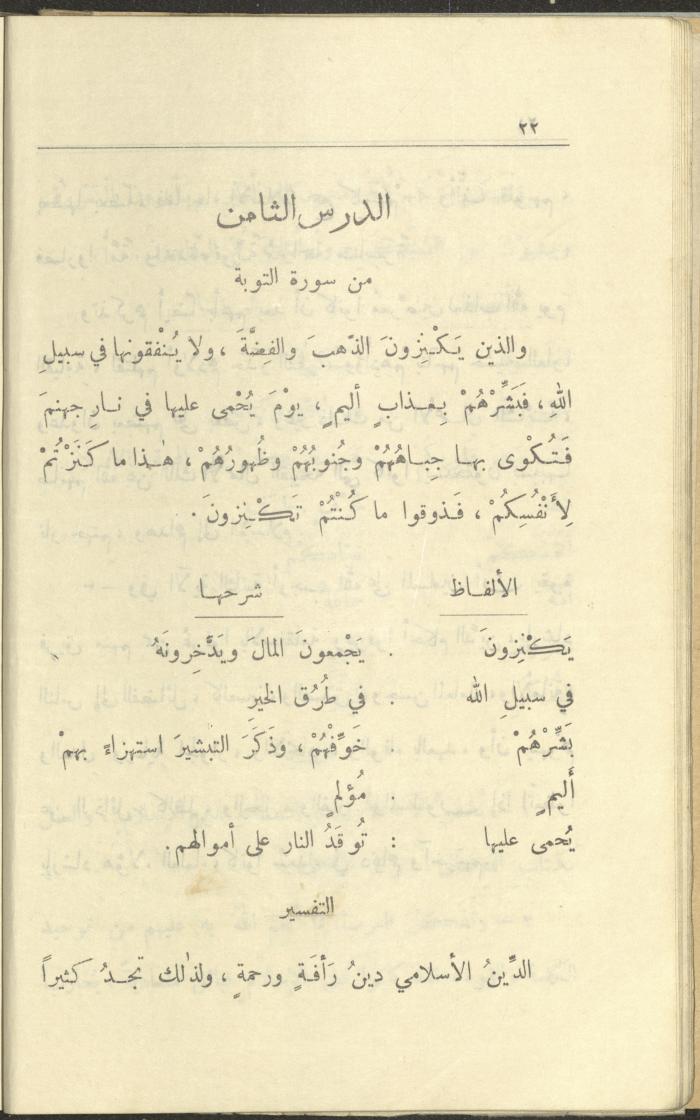 ٢٢
الدرس الثامن
من سورة التوبة
والذين يَكْنِزونَ الذّهبَ والفِضَّةَ ، ولا يُنْفقونها في سبيلِ
اللهِ ، فَبَشِّرْهُمْ بِعذابٍ أليمٍ ، يومَ يُحْمى عليها في نارِ جهنمَ
فَتُكْوى بها جِباهُهُمْ وجُنوبُهُمْ وظُهورُهُمْ ، هٰذا ما كَنَزْتُمْ
لِأَنْفُسِكُمْ ، فَذوقوا ما كُنْتُمْ تَكْنِزونَ .
الألفاظ شرحها
يَكْنِزونَ : يَجْمعونَ المالَ ويَدَّخِرونَهُ
في سبيلِ الله : في طُرُق الخيرِ
بَشِّرْهُمْ : خَوِّفْهُمْ ، وذَكَرَ التبشيرَ استهزاءً بهمْ
أَليمٍ : مُؤلمٍ
يُحمى عليها : تُوقَدُ النار على أموالهم .
التفسير
الدِّينُ الأسلامي دينُ رَأفَةٍ ورحمةٍ ، ولذٰلك تجدُ كثيراً